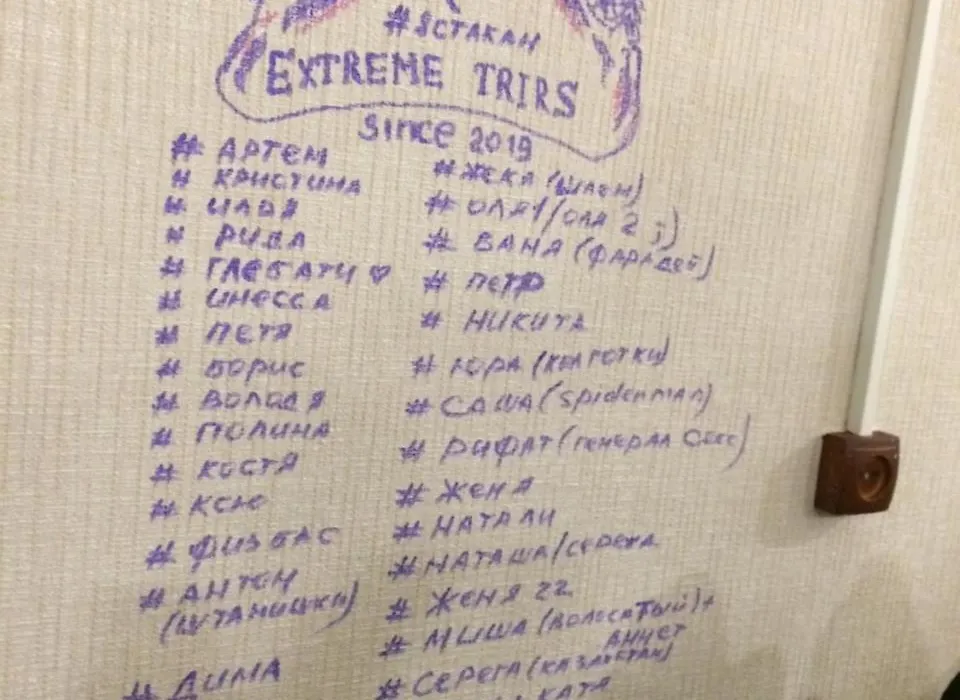 #ЯСТАКАН
EXTREME TRIRS
since 2019
# АРТЕМ
# КРИСТИНА
# ИЛЬЯ
# РИДА
# ГЛЕБАТИ ♡
# ИНЕССА
# ПЕТЯ
# БОРИС
# ВОЛОДЯ
# ПОЛИНА
# КОСТЯ
# КСЮ
# ФИЗБАС
# АНТОН
(ШТАНИШКИ)
# ДИМА
# ЖЕКА (ШЛЕМ)
# ОЛЯ1/ОЛЯ 2 ;)
# ВАНЯ (ФАРАДЕЙ)
# ПЕТР
# НИКИТА
# ЮРА (КОЛГОТКИ)
# САША (spiderman)
# РИФАТ (ГЕНЕРАЛ
# ЖЕНЯ
# НАТАЛИ
# НАТАША/СЕРЕЖА
# ЖЕНЯ 22
# МИША (ВОЛОСАТЫЙ)+
АННЕТ
# СЕРЕГА (КАЗАХСТАН)
КАТЯ